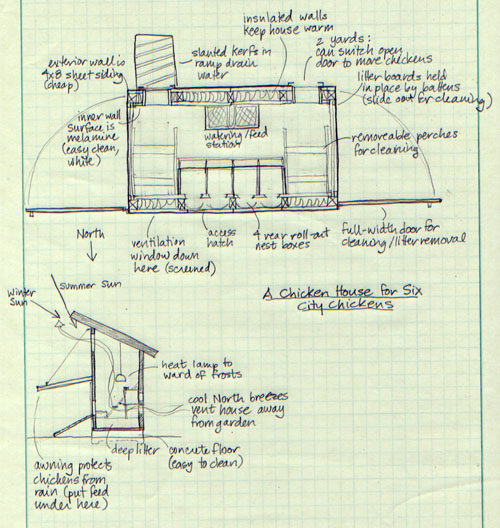 insulated walls
keep house warm
exterior wall is
4x8 sheet siding
(cheap)
slanted kerfs in
ramp drain
water
2 yards:
can switch open
door to more chickens
litter boards held
in place by battens
(slide out for cleaning)
inner wall
surface is
melamine
(easy clean,
white)
watering/feed
station
removeable perches
for cleaning
North
ventilation
window down
here (screened)
access
hatch
4 rear roll-out
nest boxes
full-width door for
cleaning/litter removal
A Chicken House for Six
City Chickens
Winter
Sun
Summer Sun
heat lamp to
ward of frosts
cool North breezes
vent house away
from garden
deep litter
concrete floor
(easy to clean)
awning protects
chickens from
rain (put feed
under here)